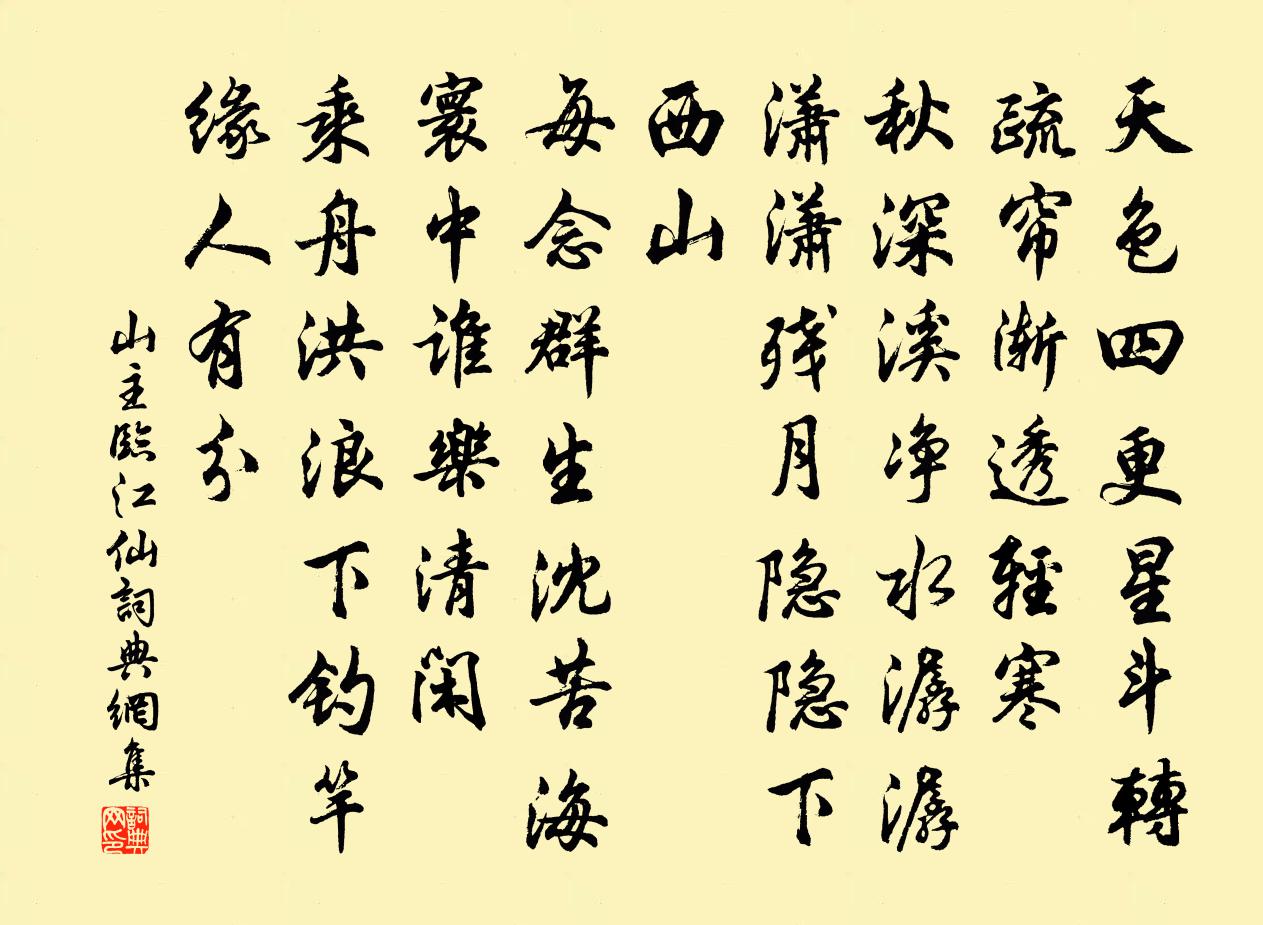 天色四更星斗轉
疏帘渐透輕寒
秋深溪净水潺潺
潇潇残月隐隐下
西山
每念群生沈苦海
寰中谁樂清闲
乘舟洪浪下钓竿
缘人有分
山主臨江仙詞典網集
詞典网印